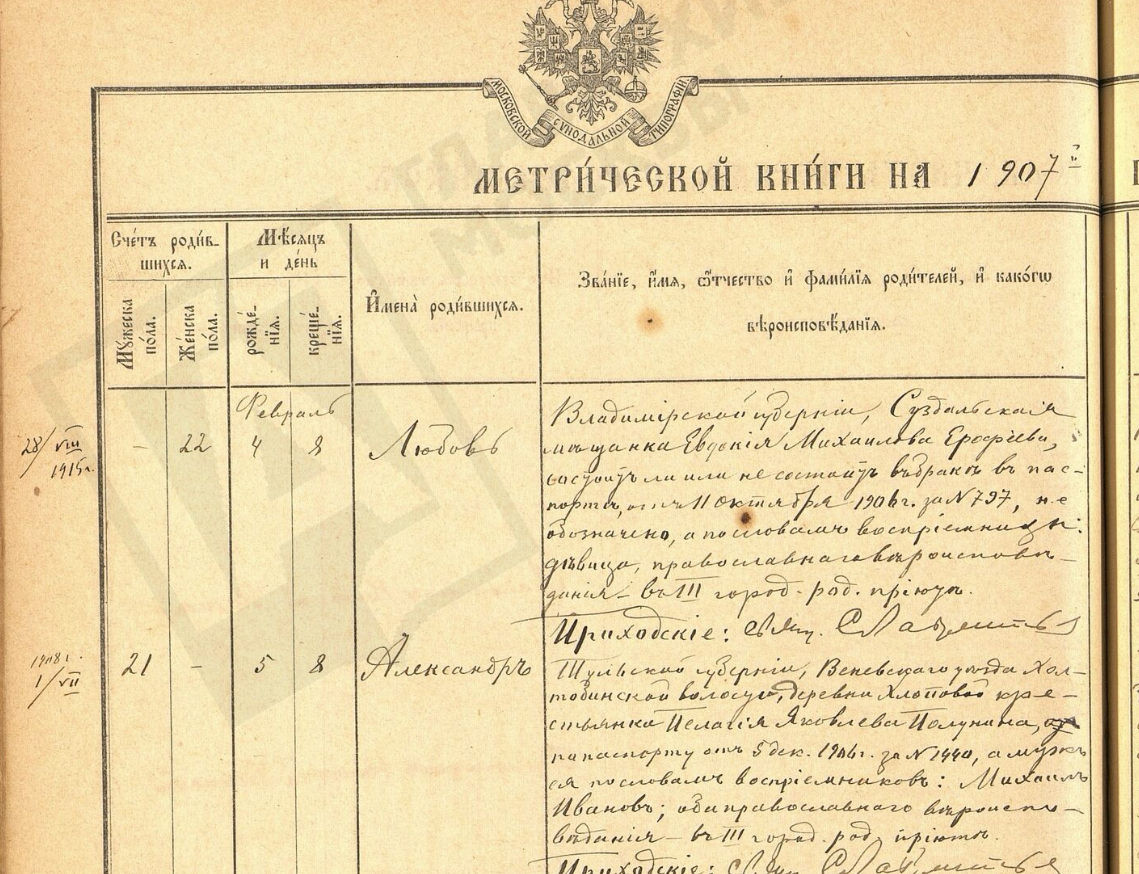 МОСКОВСКОЙ СѴНОДАЛЬНОЙ ТИПОГРАФІИ
МЕТРИ́ЧЕСКОЙ КНИ́ГИ НА 1907й
Сче́тъ роди́в-
шихся.
Му́жеска
по́ла.
Же́нска
по́ла.
Мѣ́сяцъ
и де́нь
рожде́-
нія.
креще́-
нія.
И҆мена̀ роди́вшихся.
Зва́ніе, и҆́мя, ѻ҆́тчество и҆ фами́лія роди́телей, и҆ како́гѡ
вѣроисповѣ́данія.
Февраль
28/VIII
1915г.
– 22 4 8 Любовь
Владимірской губерніи, Суздальская
мѣщанка Евдокія Михаилова Ерофѣева,
состоитъ ли или не состоитъ въ бракѣ въ пас-
портѣ, отъ 11 Октября 1906г. за N 797, не
обозначено, а по словамъ воспріемницы:
дѣвица, православнаго вѣроисповѣ-
данія – въ III город. род. пріютѣ.
Приходскіе: свящ.
1908г.
1/VII
21 – 5 8 Александръ
Тульской губерніи, Веневскаго уѣзда Хал-
тобинской волости, деревни Хлоповой кре-
стьянка Пелагія Яковлева Полунина,
по паспорту отъ 5 дек. 1906г. за N 1440, а мужъ
ея по словамъ воспріемниковъ: Михаилъ
Ивановъ; оба православнаго вѣроиспо-
вѣданія – въ III город. род. пріютѣ.
Приходскіе: свящ.